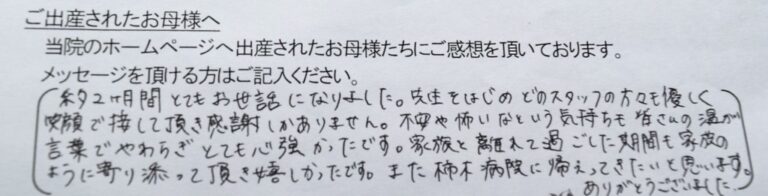 ご出産されたお母様へ
当院のホームページへ出産されたお母様たちにご感想を頂いております。
メッセージを頂ける方はご記入ください。
約2ヶ月間とてもお世話になりました。先生をはじめどのスタッフの方々も優しく
笑顔で接して頂き感謝しかありません。不安や怖いなという気持ちも皆さんの温か
言葉でやわらぎとても心強かったです。家族と離れて過ごした期間も家族の
ように寄り添って頂き嬉しかったです。また柿木病院に帰えってきたいと思います。
ありがとうございました